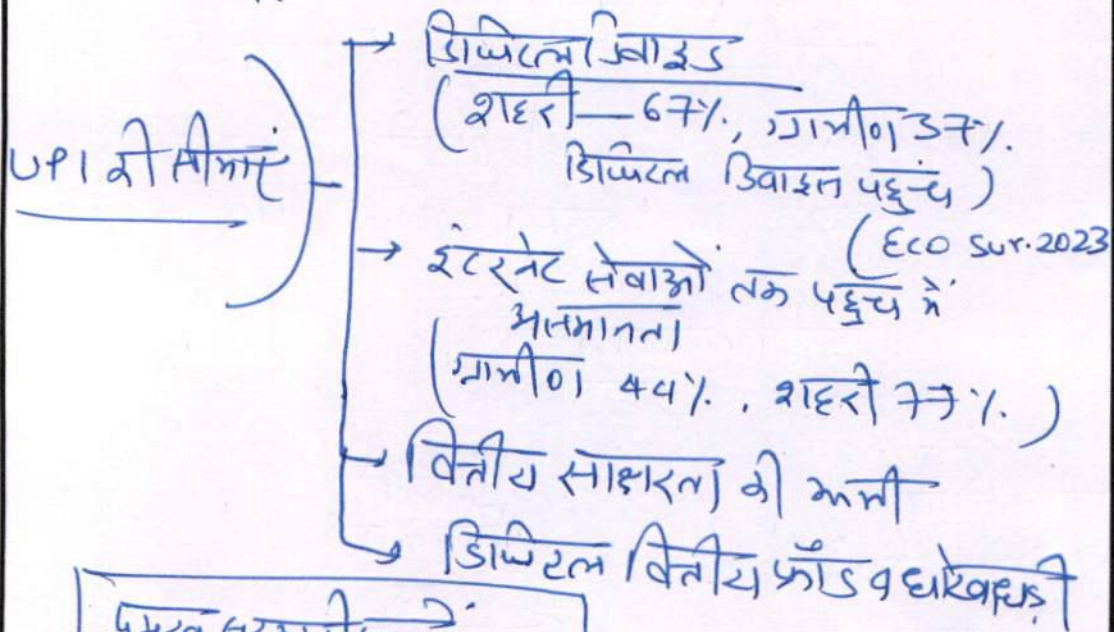 UPI की सीमाएं
→ डिजिटल डिवाइड
(शहरी — 67%, ग्रामीण 37%
डिजिटल डिवाइस पहुंच)
(Eco Sur. 2023
→ इंटरनेट सेवाओं तक पहुंच में
असमानता
(ग्रामीण 44%, शहरी 77%)
→ वित्तीय साक्षरता की कमी
→ डिजिटल वित्तीय फ्रॉड व धोखाधड़ी